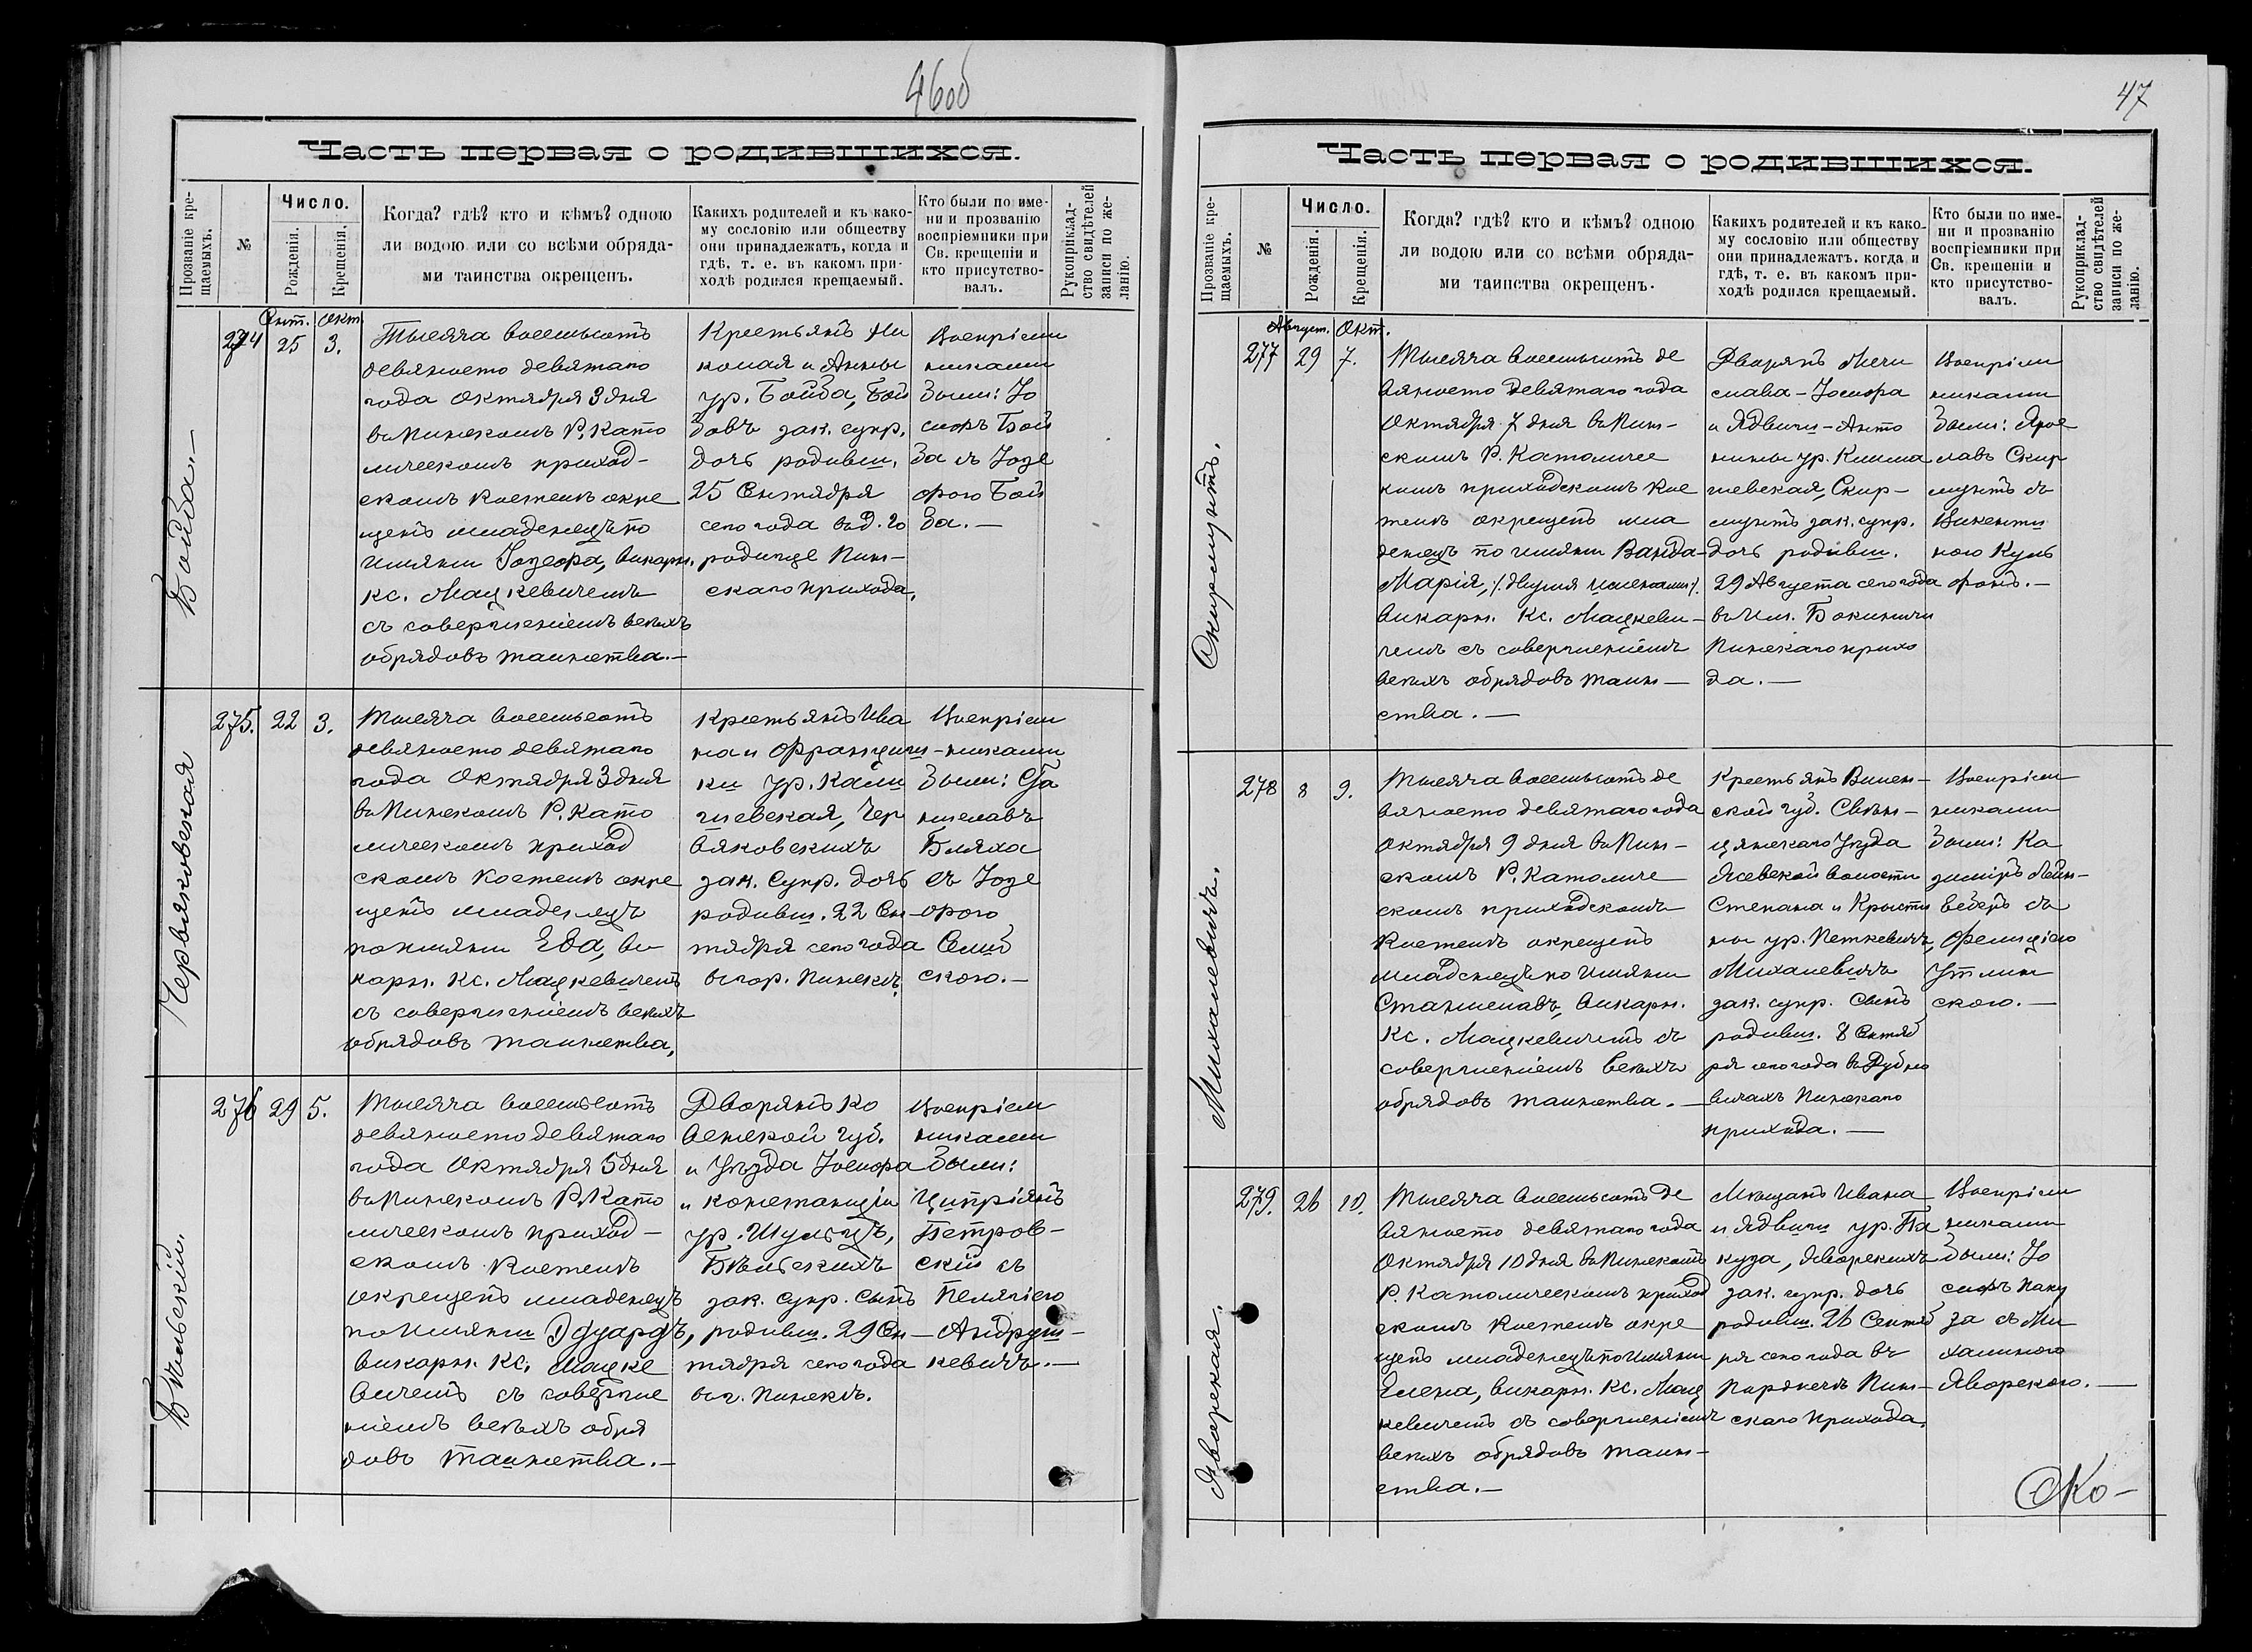 46об
Часть первая о родившихся.
Прозваніе кре-
щаемыхъ.
№
Число.
Рожденія.
Крещенія.
Когда? гдѣ? кто и кѣмъ? одною
ли водою или со всѣми обряда-
ми таинства окрещенъ.
Какихъ родителей и къ како-
му сословію или обществу
они принадлежатъ, когда и
гдѣ, т. е. въ какомъ при-
ходѣ родился крещаемый.
Кто были по име-
ни и прозванію
воспріемники при
Св. крещеніи и
кто присутство-
валъ.
Рукоприклад-
ство свидѣтелей
записи по же-
ланію.
Бойба.—
274
Сент.
25
Окт.
3.
Тысяча восемьсотъ
девяносто девятаго
года Октября 3 дня
въ Пинскомъ Р. Като
лическомъ приход-
скомъ костелѣ окре
щенъ младенецъ по
имяни Іозефа, викарн.
кс. Мацкевичемъ
съ совершеніемъ всѣхъ
обрядовъ таинства.—
Крестьянъ Ни
колая и Анны
ур. Бойба, Бой
бовъ зак. супр.
дочь родивш.
25 Сентября
сего года въ д. Го
родище Пин-
скаго прихода.
Воспріем
никами
были: Іо
сифъ Бой
ба съ Іозе
фою Бой
ба.—
Червяковская
275.
22
3.
Тысяча восемьсотъ
девяносто девятаго
года Октября 3 дня
въ Пинскомъ Р. Като
лическомъ приход
скомъ костелѣ окре
щенъ младенецъ
по имяни Ева, ви
карн. кс. Мацкевичемъ
съ совершеніемъ всѣхъ
обрядовъ таинства,
Крестьянъ Ива
на и Францишки
ки ур. Кали
шевская, Чер
вяковскихъ
зак. супр. дочь
родивш. 22 Сен-
тября сего года
въ гор. Пинскѣ.
Воспріем
никами
были: Ста
ниславъ
Бляха
съ Іозе
фою
Сели
скою.—
Бѣльскій.
276
29
5.
Тысяча восемьсотъ
девяносто девятаго
года Октября 5 дня
въ Пинскомъ Р. Като
лическомъ приход-
скомъ костелѣ
окрещенъ младенецъ
по имяни Эдуардъ,
викарн. кс. Мацке
вичемъ съ соверше
ніемъ всѣхъ обря
довъ таинства.—
Дворянъ Ко
венской губ.
и Уѣзда Іосифа
и Констанціи
ур. Шульцъ,
Бѣльскихъ
зак. супр. сынъ
родивш. 29 Сен-
тября сего года
въ г. Пинскѣ.
Воспріем
никами
были:
Ципріянъ
Петров-
скій съ
Пелягіею
Андруш-
кевичъ.—
47
Часть первая о родившихся.
Прозваніе кре-
щаемыхъ.
№
Число.
Рожденія.
Крещенія.
Когда? гдѣ? кто и кѣмъ? одною
ли водою или со всѣми обряда-
ми таинства окрещенъ.
Какихъ родителей и къ како-
му сословію или обществу
они принадлежатъ, когда и
гдѣ, т. е. въ какомъ при-
ходѣ родился крещаемый.
Кто были по име-
ни и прозванію
воспріемники при
Св. крещеніи и
кто присутство-
валъ.
Рукоприклад-
ство свидѣтелей
записи по же-
ланію.
Скирмунтъ.
277
Август.
29
Окт.
7.
Тысяча восемьсотъ де
вяносто девятаго года
Октября 7 дня въ Пин-
скомъ Р. Католичес
комъ приходскомъ кос
телѣ окрещенъ мла
денецъ по имяни Ванда-
Марія, /:двумя именами:/
викарн. кс. Мацкеви-
чемъ съ совершеніемъ
всѣхъ обрядовъ таин-
ства.—
Дворянъ Мечи
слава-Іосифа
и Ядвиги-Анто
нины ур. Клима
шевская, Скир-
мунтъ зак. супр.
дочь родивш.
29 Августа сего года
въ Им. Бокиничи
Пинскаго прихо
да.—
Воспріем
никами
были: Яро
славъ Скир
мунтъ съ
Викенти
ною Куль
фонъ.—
Михалевичъ.
278
8
9.
Тысяча восемьсотъ де
вяносто девятаго года
Октября 9 дня въ Пин-
скомъ Р. Католиче
скомъ приходскомъ
костелѣ окрещенъ
младенецъ по имяни
Станиславъ, викарн.
кс. Мацкевичемъ съ
совершеніемъ всѣхъ
обрядовъ таинства.—
Крестьянъ Вилен-
ской губ. Свѣн-
цянскаго Уѣзда
Ясевской волости
Степана и Крысти
ны ур. Петкевичъ,
Михалевичъ
зак. супр. сынъ
родивш. 8 Сентяб
ря сего года въ Дубно
вичахъ Пинскаго
прихода.—
Воспріем
никами
были: Ка
зиміръ Лейн-
вебенъ съ
Фелиціею
Утлин
скою.—
Яворская.
279.
26
10.
Тысяча восемьсотъ де
вяносто девятаго года
Октября 10 дня въ Пинскомъ
Р. Католическомъ приход
скомъ костелѣ окре
щенъ младенецъ по имяни
Елена, викарн. кс. Мац
кевичемъ съ совершеніемъ
всѣхъ обрядовъ таин-
ства.—
Мѣщанъ Ивана
и Ядвиги ур. Па
куза, Яворскихъ
зак. супр. дочь
родивш. 26 Сентяб
ря сего года въ
Парѣчьѣ Пин-
скаго прихода.
Воспріем
никами
были: Іо
сифъ Паку
за съ Ми
халиною
Яворскою.—